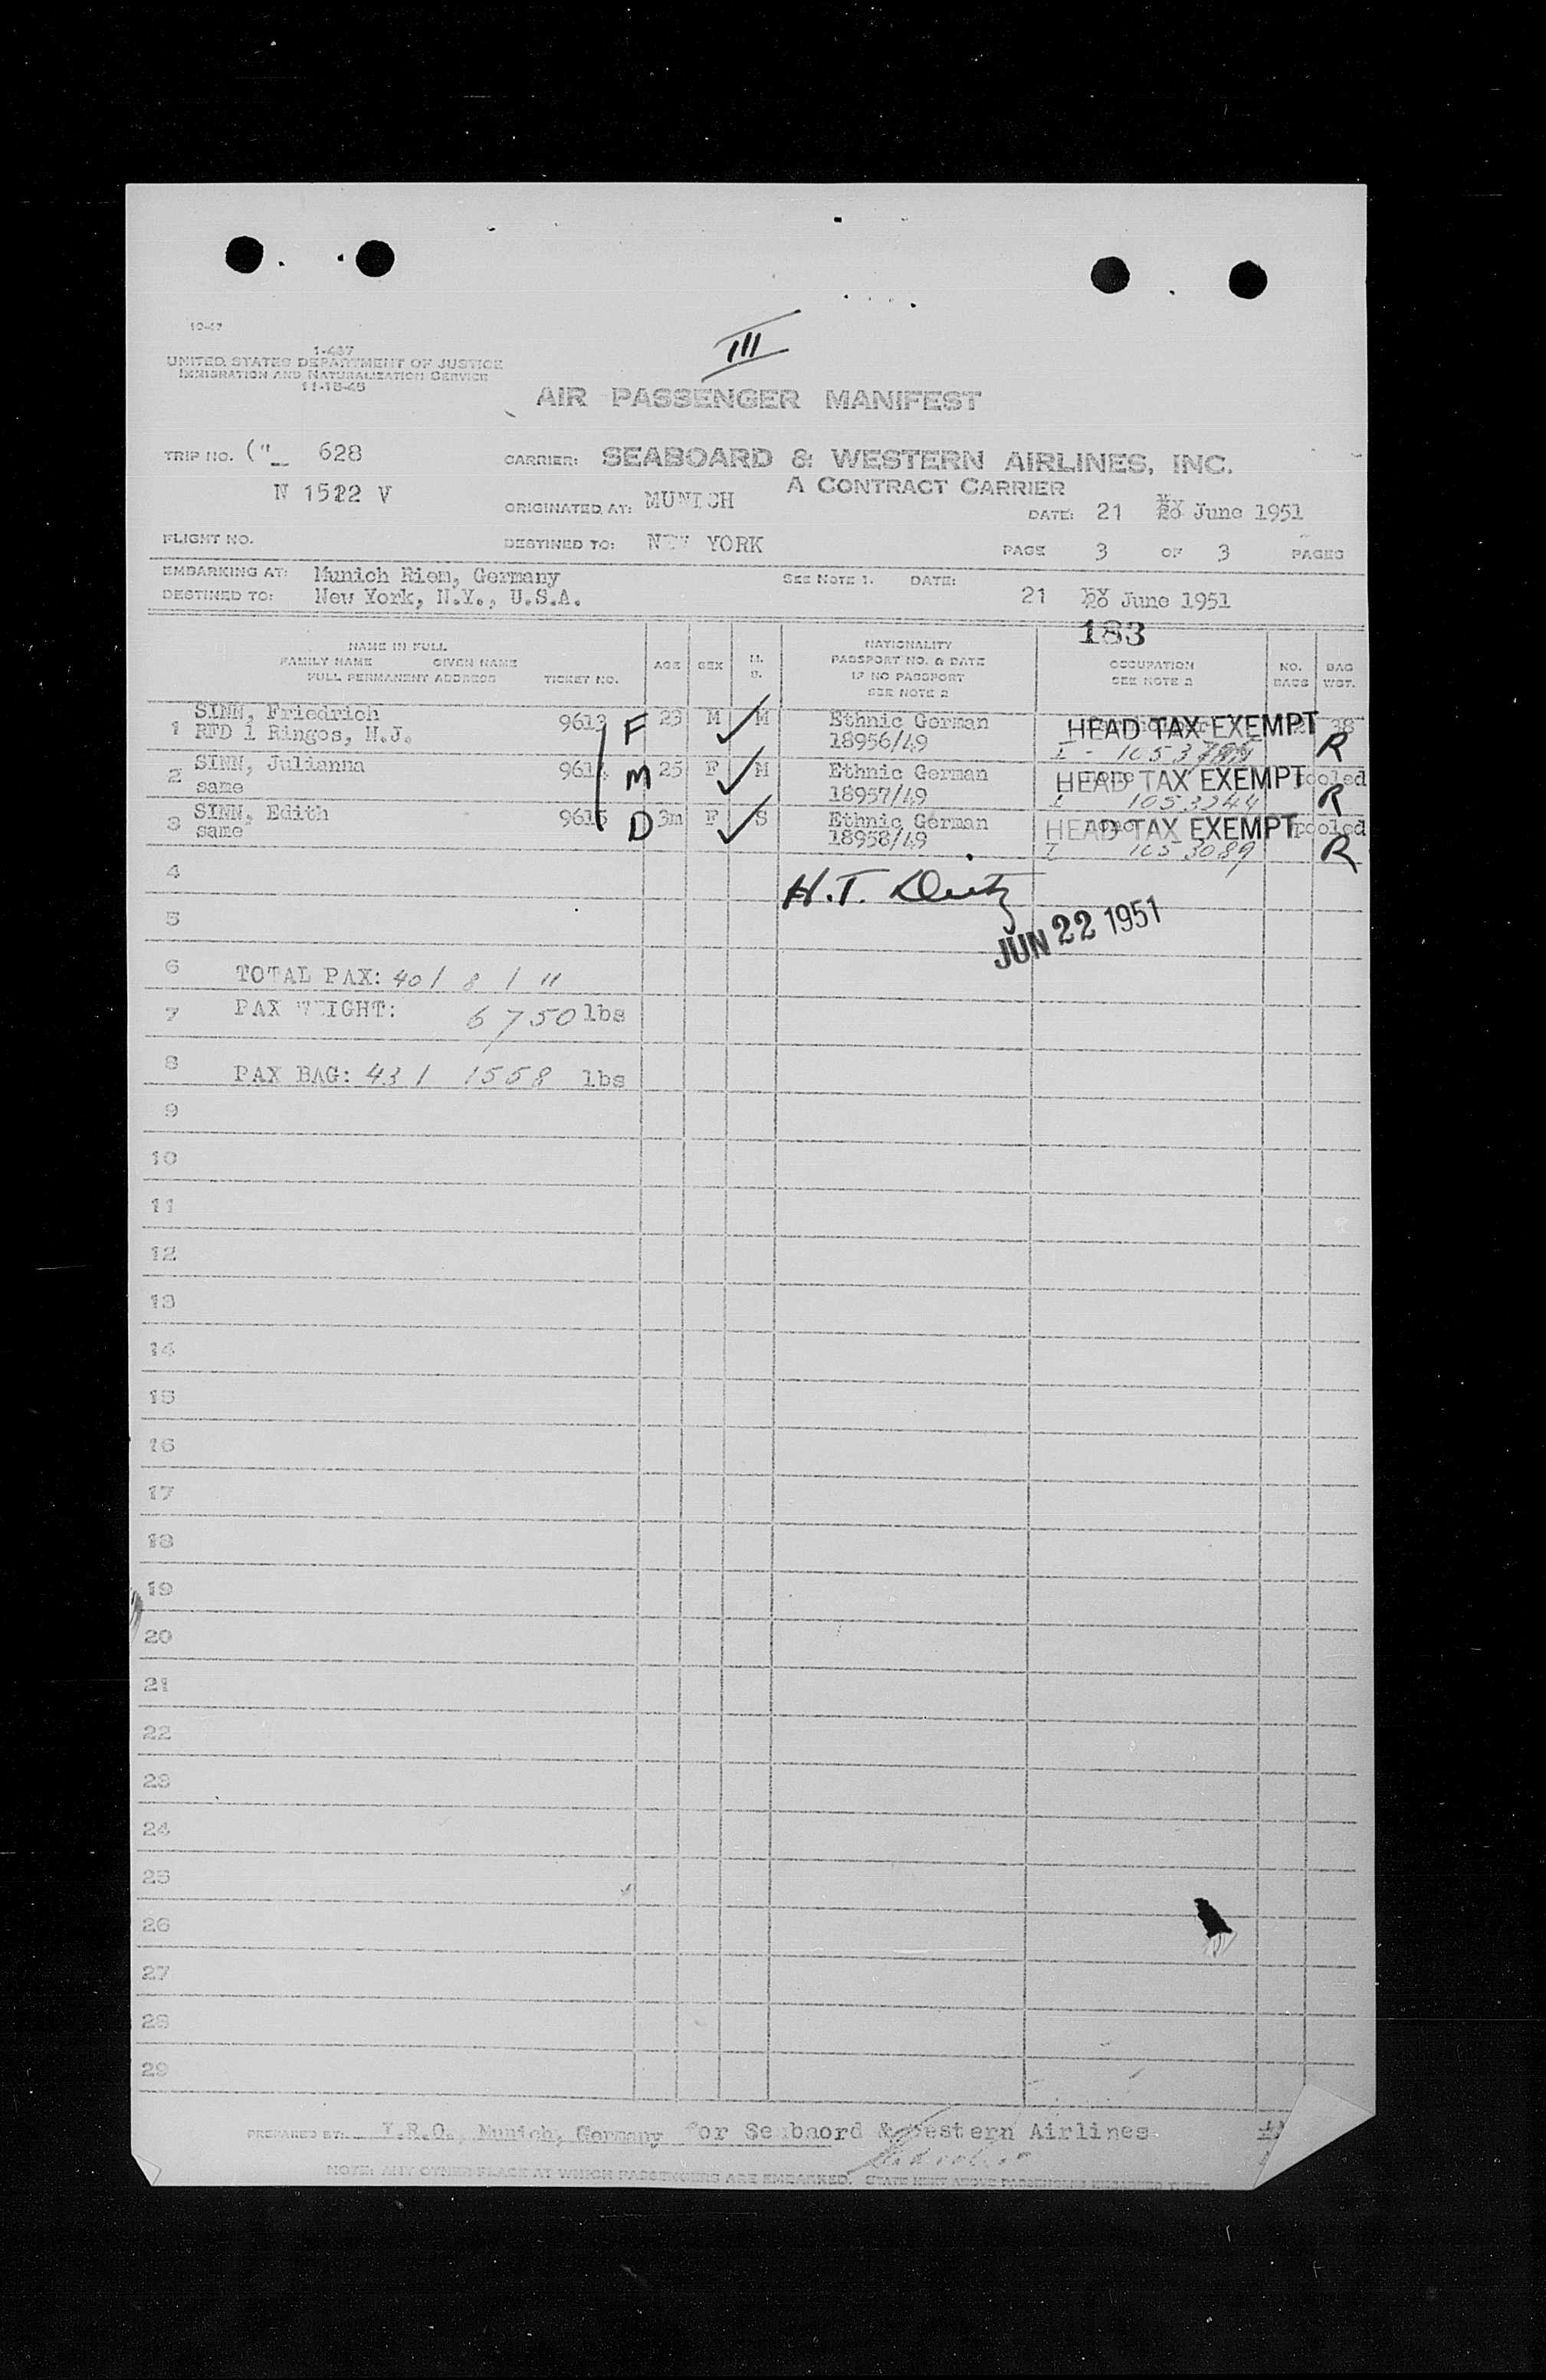 10-47
III
1-467
UNITED STATES DEPARTMENT OF JUSTICE
IMMIGRATION AND NATURALIZATION SERVICE
11-18-45
AIR PASSENGER MANIFEST
TRIP NO. 628
CARRIER: SEABOARD & WESTERN AIRLINES, INC.
N 1522 V
A CONTRACT CARRIER
ORIGINATED AT: MUNICH
DATE: 21 June 1951
FLIGHT NO.
DESTINED TO: NEW YORK
PAGE 3 OF 3 PAGES
EMBARKING AT: Munich Riem, Germany
SEE NOTE 1. DATE:
DESTINED TO: New York, N.Y., U.S.A.
21 June 1951
183
NAME IN FULL
FAMILY NAME GIVEN NAME
FULL PERMANENT ADDRESS
TICKET NO.
AGE
SEX
M.
S.
NATIONALITY
PASSPORT NO. & DATE
IF NO PASSPORT
SEE NOTE 2
OCCUPATION
SEE NOTE 2
NO.
BAGS
BAG
WGT.
1 SINN, Friedrich 9613 F 23 M M Ethnic German HEAD TAX EXEMPT 38
RFD 1 Ringos, N.J. 18956/49 I - R
2 SINN, Julianna 9614 M 25 F M Ethnic German HEAD TAX EXEMPT pooled
same 18957/49 I 1053244 R
3 SINN, Edith 9615 D 3m F S Ethnic German HEAD TAX EXEMPT pooled
same 18958/49 I 1053089 R
4
H.T.
5
JUN 22 1951
6 TOTAL PAX: 40 / 8 / 11
7 PAX WEIGHT: 6750 lbs
8 PAX BAG: 43 / 1558 lbs
9
10
11
12
13
14
15
16
17
18
19
20
21
22
23
24
25
26
27
28
29
PREPARED BY: I.R.O., Munich, Germany for Seabaord & Western Airlines
NOTE: ANY OTHER PLACE AT WHICH PASSENGERS ARE EMBARKED. STATE NEXT ABOVE PASSENGERS EMBARKED THERE.